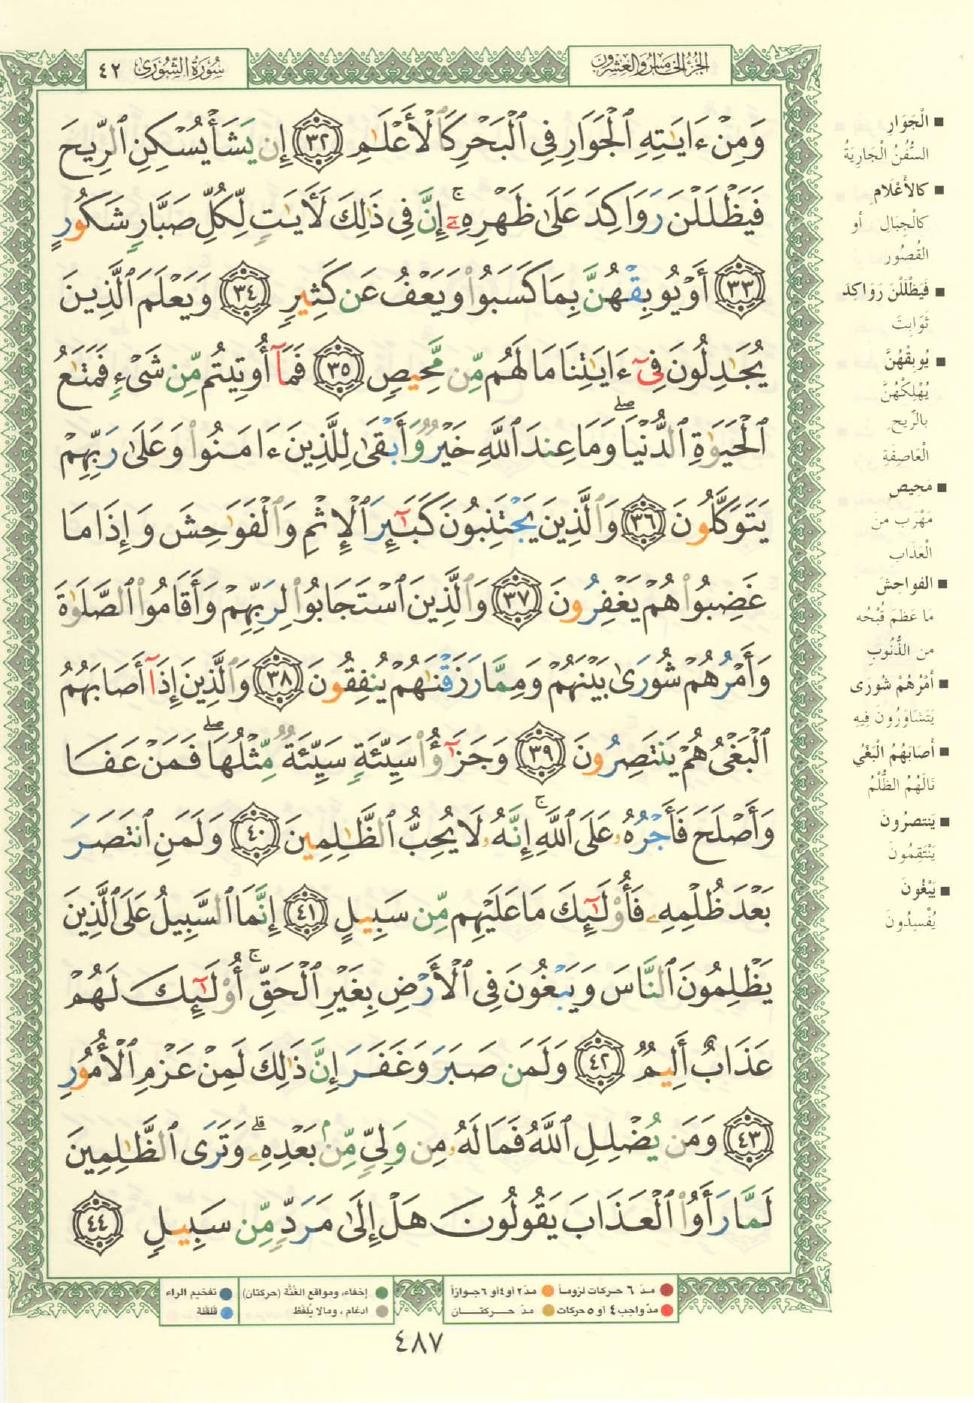 سُورَةُ الشُّورَى ٤٢
الجُزْءُ الخَامِسُ وَالعِشْرُون
وَمِنْ ءَايَٰتِهِ ٱلْجَوَارِ فِى ٱلْبَحْرِ كَٱلْأَعْلَٰمِ ٣٢ إِن يَشَأْ يُسْكِنِ ٱلرِّيحَ
فَيَظْلَلْنَ رَوَاكِدَ عَلَىٰ ظَهْرِهِۦٓ ۚ إِنَّ فِى ذَٰلِكَ لَأَيَٰتٍ لِّكُلِّ صَبَّارٍ شَكُورٍ
٣٣ أَوْ يُوبِقْهُنَّ بِمَا كَسَبُوا۟ وَيَعْفُ عَن كَثِيرٍ ٣٤ وَيَعْلَمَ ٱلَّذِينَ
يُجَٰدِلُونَ فِىٓ ءَايَٰتِنَا مَا لَهُم مِّن مَّحِيصٍ ٣٥ فَمَآ أُوتِيتُم مِّن شَىْءٍ فَمَتَٰعُ
ٱلْحَيَوٰةِ ٱلدُّنْيَا ۖ وَمَا عِندَ ٱللَّهِ خَيْرٌ وَأَبْقَىٰ لِلَّذِينَ ءَامَنُوا۟ وَعَلَىٰ رَبِّهِمْ
يَتَوَكَّلُونَ ٣٦ وَٱلَّذِينَ يَجْتَنِبُونَ كَبَٰٓئِرَ ٱلْإِثْمِ وَٱلْفَوَٰحِشَ وَإِذَا مَا
غَضِبُوا۟ هُمْ يَغْفِرُونَ ٣٧ وَٱلَّذِينَ ٱسْتَجَابُوا۟ لِرَبِّهِمْ وَأَقَامُوا۟ ٱلصَّلَوٰةَ
وَأَمْرُهُمْ شُورَىٰ بَيْنَهُمْ وَمِمَّا رَزَقْنَٰهُمْ يُنفِقُونَ ٣٨ وَٱلَّذِينَ إِذَآ أَصَابَهُمُ
ٱلْبَغْىُ هُمْ يَنتَصِرُونَ ٣٩ وَجَزَٰٓؤُا۟ سَيِّئَةٍ سَيِّئَةٌ مِّثْلُهَا ۖ فَمَنْ عَفَا
وَأَصْلَحَ فَأَجْرُهُۥ عَلَى ٱللَّهِ ۚ إِنَّهُۥ لَا يُحِبُّ ٱلظَّٰلِمِينَ ٤٠ وَلَمَنِ ٱنتَصَرَ
بَعْدَ ظُلْمِهِۦ فَأُو۟لَٰٓئِكَ مَا عَلَيْهِم مِّن سَبِيلٍ ٤١ إِنَّمَا ٱلسَّبِيلُ عَلَى ٱلَّذِينَ
يَظْلِمُونَ ٱلنَّاسَ وَيَبْغُونَ فِى ٱلْأَرْضِ بِغَيْرِ ٱلْحَقِّ ۚ أُو۟لَٰٓئِكَ لَهُمْ
عَذَابٌ أَلِيمٌ ٤٢ وَلَمَن صَبَرَ وَغَفَرَ إِنَّ ذَٰلِكَ لَمِنْ عَزْمِ ٱلْأُمُورِ
٤٣ وَمَن يُضْلِلِ ٱللَّهُ فَمَا لَهُۥ مِن وَلِىٍّ مِّنۢ بَعْدِهِۦ ۗ وَتَرَى ٱلظَّٰلِمِينَ
لَمَّا رَأَوُا۟ ٱلْعَذَابَ يَقُولُونَ هَلْ إِلَىٰ مَرَدٍّ مِّن سَبِيلٍ ٤٤
الْجَوَارِ
السُّفُنُ الْجَارِيَةُ
كالأَعْلام
كالْجِبَالِ أو
القُصُور
فَيَظْلَلْنَ رَوَاكِدَ
ثَوَابِتَ
يُوبِقْهُنَّ
يُهْلِكْهُنَّ
بالرِّيح
الْعَاصِفَةِ
مَحِيص
مَهْرَب من
الْعَذَاب
الفواحِشَ
ما عَظُمَ قُبْحُه
من الذُّنُوبِ
أمْرُهُمْ شُورَى
يَتَشَاوَرُونَ فِيهِ
أصَابَهُمُ الْبَغْيُ
نَالَهُمُ الظُّلْمُ
يَنتصِرُونَ
يَنْتَقِمُونَ
يَبْغُونَ
يُفْسِدُونَ
مدّ ٦ حركات لزوماً مدّ٢ أو٤ أو ٦ جوازاً
مدّ واجب ٤ أو ٥ حركات مدّ حركتان
إخفاء، ومواقع الغُنَّة (حركتان) تفخيم الراء
ادغام ، ومالا يُلفظ قلقلة
٤٨٧